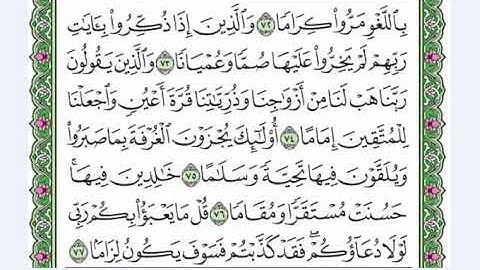 بِاللَّغْوِ مَرُّوا۟ كِرَامًا ٧٢ وَالَّذِينَ إِذَا ذُكِّرُوا۟ بِـَٔايَٰتِ
رَبِّهِمْ لَمْ يَخِرُّوا۟ عَلَيْهَا صُمًّا وَعُمْيَانًا ٧٣ وَالَّذِينَ يَقُولُونَ
رَبَّنَا هَبْ لَنَا مِنْ أَزْوَٰجِنَا وَذُرِّيَّٰتِنَا قُرَّةَ أَعْيُنٍ وَاجْعَلْنَا
لِلْمُتَّقِينَ إِمَامًا ٧٤ أُو۟لَٰٓئِكَ يُجْزَوْنَ الْغُرْفَةَ بِمَا صَبَرُوا۟
وَيُلَقَّوْنَ فِيهَا تَحِيَّةً وَسَلَٰمًا ٧٥ خَٰلِدِينَ فِيهَا ۚ
حَسُنَتْ مُسْتَقَرًّا وَمُقَامًا ٧٦ قُلْ مَا يَعْبَؤُا۟ بِكُمْ رَبِّى
لَوْلَا دُعَآؤُكُمْ ۖ فَقَدْ كَذَّبْتُمْ فَسَوْفَ يَكُونُ لِزَامًۢا ٧٧